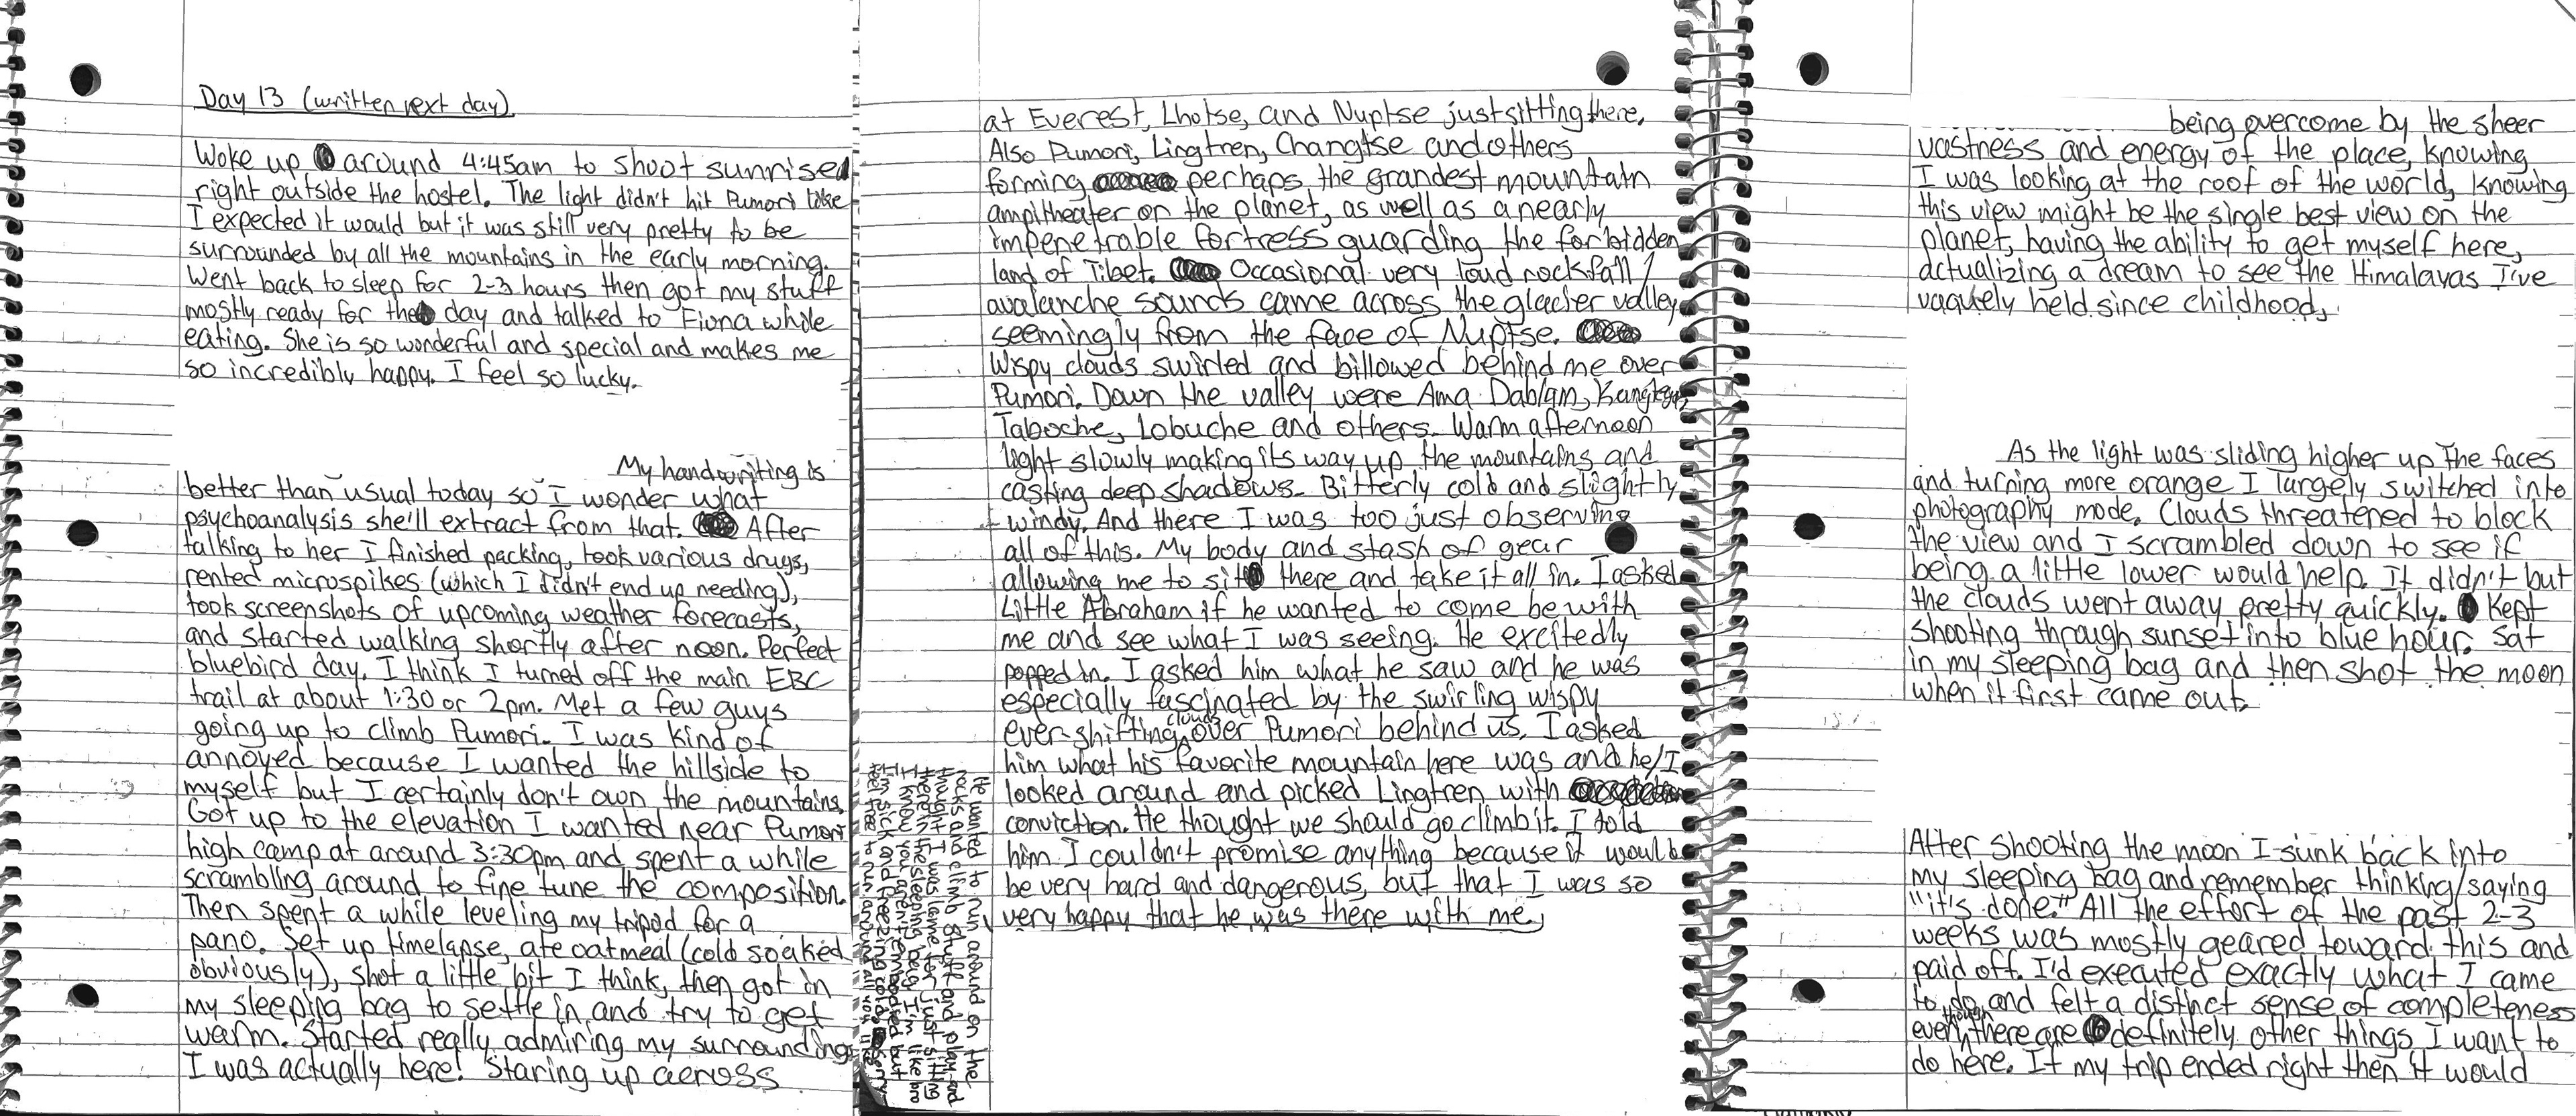 Day 13 (written next day)
Woke up around 4:45am to shoot sunrise
right outside the hostel. The light didn't hit Pumori like
I expected it would but it was still very pretty to be
surrounded by all the mountains in the early morning.
Went back to sleep for 2-3 hours then got my stuff
mostly ready for the day and talked to Fiona while
eating. She is so wonderful and special and makes me
so incredibly happy. I feel so lucky.
My handwriting is
better than usual today so I wonder what
psychoanalysis she'll extract from that. After
talking to her I finished packing, took various drugs,
rented microspikes (which I didn't end up needing),
took screenshots of upcoming weather forecasts,
and started walking shortly after noon. Perfect
bluebird day. I think I turned off the main EBC
trail at about 1:30 or 2pm. Met a few guys
going up to climb Pumori. I was kind of
annoyed because I wanted the hillside to
myself but I certainly don't own the mountains.
Got up to the elevation I wanted near Pumori
high camp at around 3:30pm and spent a while
scrambling around to fine tune the composition.
Then spent a while leveling my tripod for a
pano. Set up timelapse, ate oatmeal (cold soaked
obviously), shot a little bit I think, then got in
my sleeping bag to settle in and try to get
warm. Started really admiring my surroundings
I was actually here! Staring up across
at Everest, Lhotse, and Nuptse just sitting there.
Also Pumori, Lingtren, Changtse and others
forming perhaps the grandest mountain
ampitheater on the planet, as well as a nearly
impenetrable fortress guarding the forbidden
land of Tibet. Occasional very loud rockfall/
avalanche sounds came across the glacier valley
seemingly from the face of Nuptse.
Wispy clouds swirled and billowed behind me over
Pumori. Down the valley were Ama Dablam, Kangtega,
Taboche, Lobuche and others. Warm afternoon
light slowly making its way up the mountains and
casting deep shadows. Bitterly cold and slightly
windy. And there I was too just observing
all of this. My body and stash of gear
allowing me to sit there and take it all in. I asked
Little Abraham if he wanted to come be with
me and see what I was seeing. He excitedly
popped in. I asked him what he saw and he was
especially fascinated by the swirling wispy
ever-shifting clouds over Pumori behind us. I asked
him what his favorite mountain here was and he/I
looked around and picked Lingtren with
conviction. He thought we should go climb it. I told
him I couldn't promise anything because it would
be very hard and dangerous, but that I was so
very happy that he was there with me.
He wanted to run around on the
rocks and climb stuff and play and
thought I was lame for just sitting
there in the sleeping bag. I'm like bro
I know you aren't embodied but
I'm sick and freezing cold. Sorry.
Feel free to run around all you like
being overcome by the sheer
vastness and energy of the place, knowing
I was looking at the roof of the world, knowing
this view might be the single best view on the
planet, having the ability to get myself here,
actualizing a dream to see the Himalayas I've
vaguely held since childhood,
As the light was sliding higher up the faces
and turning more orange I largely switched into
photography mode. Clouds threatened to block
the view and I scrambled down to see if
being a little lower would help. It didn't but
the clouds went away pretty quickly. Kept
shooting through sunset into blue hour. Sat
in my sleeping bag and then shot the moon
when it first came out.
After shooting the moon I sunk back into
my sleeping bag and remember thinking/saying
"it's done." All the effort of the past 2-3
weeks was mostly geared toward this and
paid off. I'd executed exactly what I came
to do and felt a distinct sense of completeness
even though there are definitely other things I want to
do here. If my trip ended right then it would